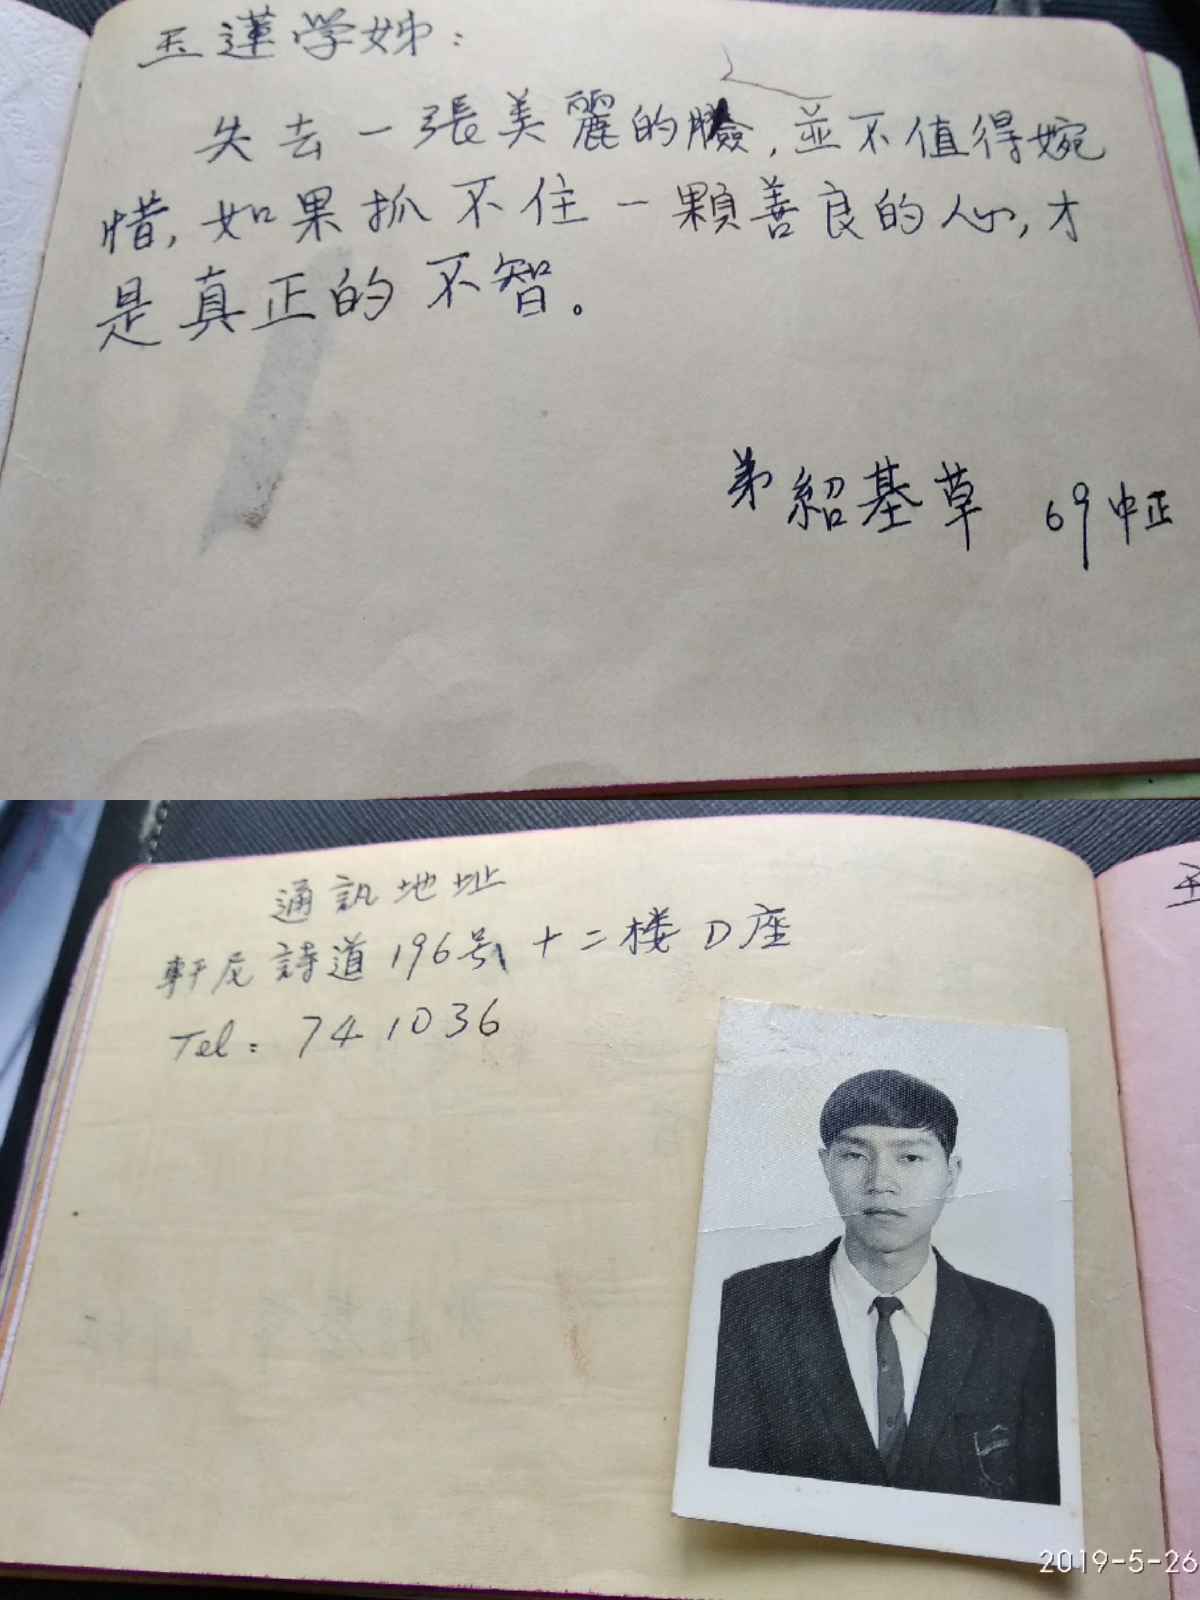 玉蓮学姊：
失去一張美麗的臉，並不值得婉
惜，如果抓不住一顆善良的心，才
是真正的不智。
弟紹基草 69中正
通訊地址
軒尼詩道196号十二楼D座
Tel: 741036
2019-5-26